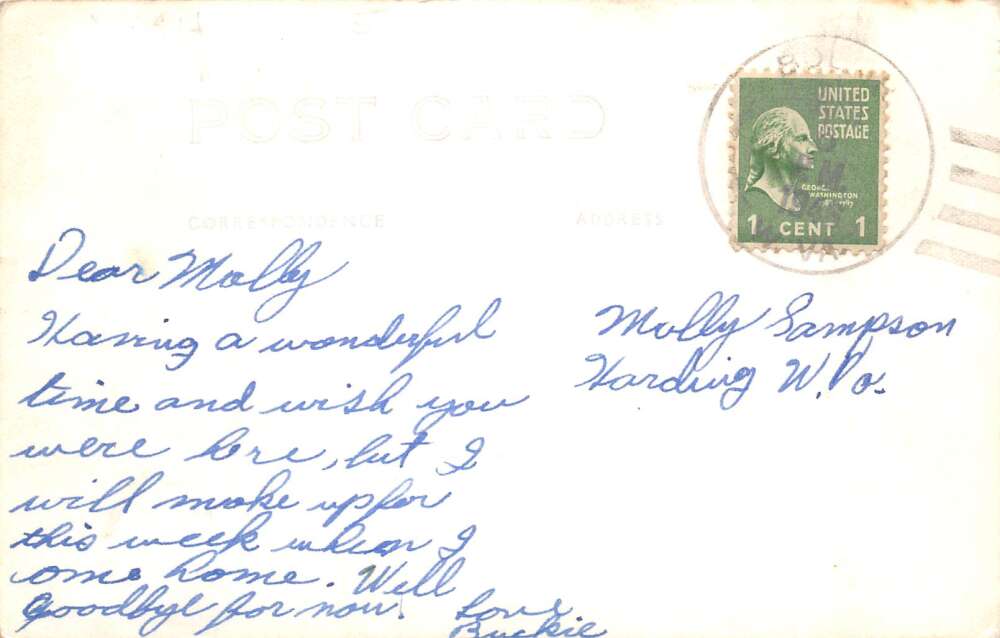 POST CARD
CORRESPONDENCE
ADDRESS
BOL
UNITED
STATES
POSTAGE
GEORGE
WASHINGTON
1 CENT 1
W. VA.
Dear Molly
Having a wonderful
time and wish you
were here, but I
will make up for
this week when I
ome home. Well
goodbye for now.
Love
Buckie
Molly Sampson
Harding W. Va.